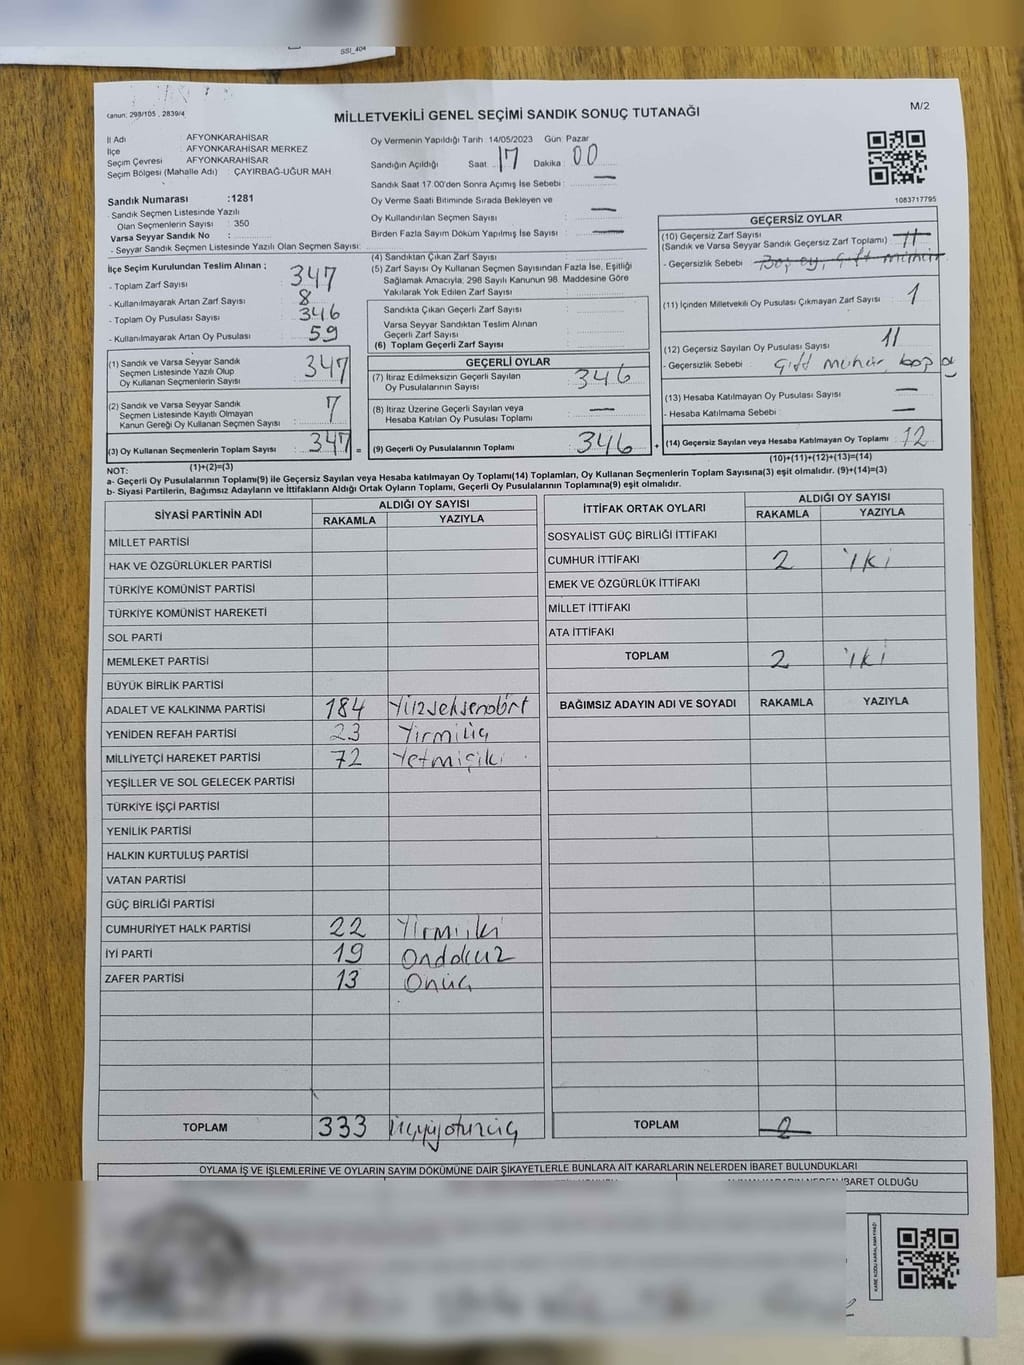 SSI_404
Kanun: 298/105 , 2839/4
MİLLETVEKİLİ GENEL SEÇİMİ SANDIK SONUÇ TUTANAĞI
M/2
İl Adı AFYONKARAHİSAR
İlçe AFYONKARAHİSAR MERKEZ
Seçim Çevresi AFYONKARAHİSAR
Seçim Bölgesi (Mahalle Adı) : ÇAYIRBAĞ-UĞUR MAH
Sandık Numarası :1281
- Sandık Seçmen Listesinde Yazılı
Olan Seçmenlerin Sayısı : 350
Varsa Seyyar Sandık No :
- Seyyar Sandık Seçmen Listesinde Yazılı Olan Seçmen Sayısı:
Oy Vermenin Yapıldığı Tarih :14/05/2023 Gün: Pazar
Sandığın Açıldığı Saat : 17 Dakika : 00
Sandık Saat 17.00'den Sonra Açılmış İse Sebebi : —
Oy Verme Saati Bitiminde Sırada Bekleyen ve
Oy Kullandırılan Seçmen Sayısı : —
Birden Fazla Sayım Döküm Yapılmış İse Sayısı : —
1083717795
İlçe Seçim Kurulundan Teslim Alınan ;
- Toplam Zarf Sayısı : 347
- Kullanılmayarak Artan Zarf Sayısı : 8
- Toplam Oy Pusulası Sayısı : 346
- Kullanılmayarak Artan Oy Pusulası : 59
(1) Sandık ve Varsa Seyyar Sandık
Seçmen Listesinde Yazılı Olup
Oy Kullanan Seçmenlerin Sayısı : 347
(2) Sandık ve Varsa Seyyar Sandık
Seçmen Listesinde Kayıtlı Olmayan
Kanun Gereği Oy Kullanan Seçmen Sayısı : 7
(3) Oy Kullanan Seçmenlerin Toplam Sayısı : 347 =
(1)+(2)=(3)
(4) Sandıktan Çıkan Zarf Sayısı :
(5) Zarf Sayısı Oy Kullanan Seçmen Sayısından Fazla İse, Eşitliği
Sağlamak Amacıyla, 298 Sayılı Kanunun 98. Maddesine Göre
Yakılarak Yok Edilen Zarf Sayısı :
Sandıkta Çıkan Geçerli Zarf Sayısı :
Varsa Seyyar Sandıktan Teslim Alınan
Geçerli Zarf Sayısı :
(6) Toplam Geçerli Zarf Sayısı :
GEÇERLİ OYLAR
(7) İtiraz Edilmeksizin Geçerli Sayılan
Oy Pusulalarının Sayısı : 346
(8) İtiraz Üzerine Geçerli Sayılan veya
Hesaba Katılan Oy Pusulası Toplamı : —
(9) Geçerli Oy Pusulalarının Toplamı : 346 +
GEÇERSİZ OYLAR
(10) Geçersiz Zarf Sayısı
(Sandık ve Varsa Seyyar Sandık Geçersiz Zarf Toplamı) : 11
- Geçersizlik Sebebi : Boş oy, Çift mühür
(11) İçinden Milletvekili Oy Pusulası Çıkmayan Zarf Sayısı : 1
(12) Geçersiz Sayılan Oy Pusulası Sayısı : 11
- Geçersizlik Sebebi : Çift mühür,
(13) Hesaba Katılmayan Oy Pusulası Sayısı : —
- Hesaba Katılmama Sebebi : —
(14) Geçersiz Sayılan veya Hesaba Katılmayan Oy Toplamı : 12
(10)+(11)+(12)+(13)=(14)
NOT:
a- Geçerli Oy Pusulalarının Toplamı(9) ile Geçersiz Sayılan veya Hesaba katılmayan Oy Toplamı(14) Toplamları, Oy Kullanan Seçmenlerin Toplam Sayısına(3) eşit olmalıdır. (9)+(14)=(3)
b- Siyasi Partilerin, Bağımsız Adayların ve İttifakların Aldığı Ortak Oyların Toplamı, Geçerli Oy Pusulalarının Toplamına(9) eşit olmalıdır.
SİYASİ PARTİNİN ADI ALDIĞI OY SAYISI
RAKAMLA YAZIYLA
MİLLET PARTİSİ
HAK VE ÖZGÜRLÜKLER PARTİSİ
TÜRKİYE KOMÜNİST PARTİSİ
TÜRKİYE KOMÜNİST HAREKETİ
SOL PARTİ
MEMLEKET PARTİSİ
BÜYÜK BİRLİK PARTİSİ
ADALET VE KALKINMA PARTİSİ 184 Yüzseksendört
YENİDEN REFAH PARTİSİ 23 Yirmiüç
MİLLİYETÇİ HAREKET PARTİSİ 72 Yetmişiki
YEŞİLLER VE SOL GELECEK PARTİSİ
TÜRKİYE İŞÇİ PARTİSİ
YENİLİK PARTİSİ
HALKIN KURTULUŞ PARTİSİ
VATAN PARTİSİ
GÜÇ BİRLİĞİ PARTİSİ
CUMHURİYET HALK PARTİSİ 22 Yirmiiki
İYİ PARTİ 19 Ondokuz
ZAFER PARTİSİ 13 Onüç
TOPLAM 333 üçyüzotuzüç
İTTİFAK ORTAK OYLARI ALDIĞI OY SAYISI
RAKAMLA YAZIYLA
SOSYALİST GÜÇ BİRLİĞİ İTTİFAKI
CUMHUR İTTİFAKI 2 iki
EMEK VE ÖZGÜRLÜK İTTİFAKI
MİLLET İTTİFAKI
ATA İTTİFAKI
TOPLAM 2 iki
BAĞIMSIZ ADAYIN ADI VE SOYADI RAKAMLA YAZIYLA
TOPLAM 2
OYLAMA İŞ VE İŞLEMLERİNE VE OYLARIN SAYIM DÖKÜMÜNE DAİR ŞİKAYETLERLE BUNLARA AİT KARARLARIN NELERDEN İBARET BULUNDUKLARI
İBARET OLDUĞU